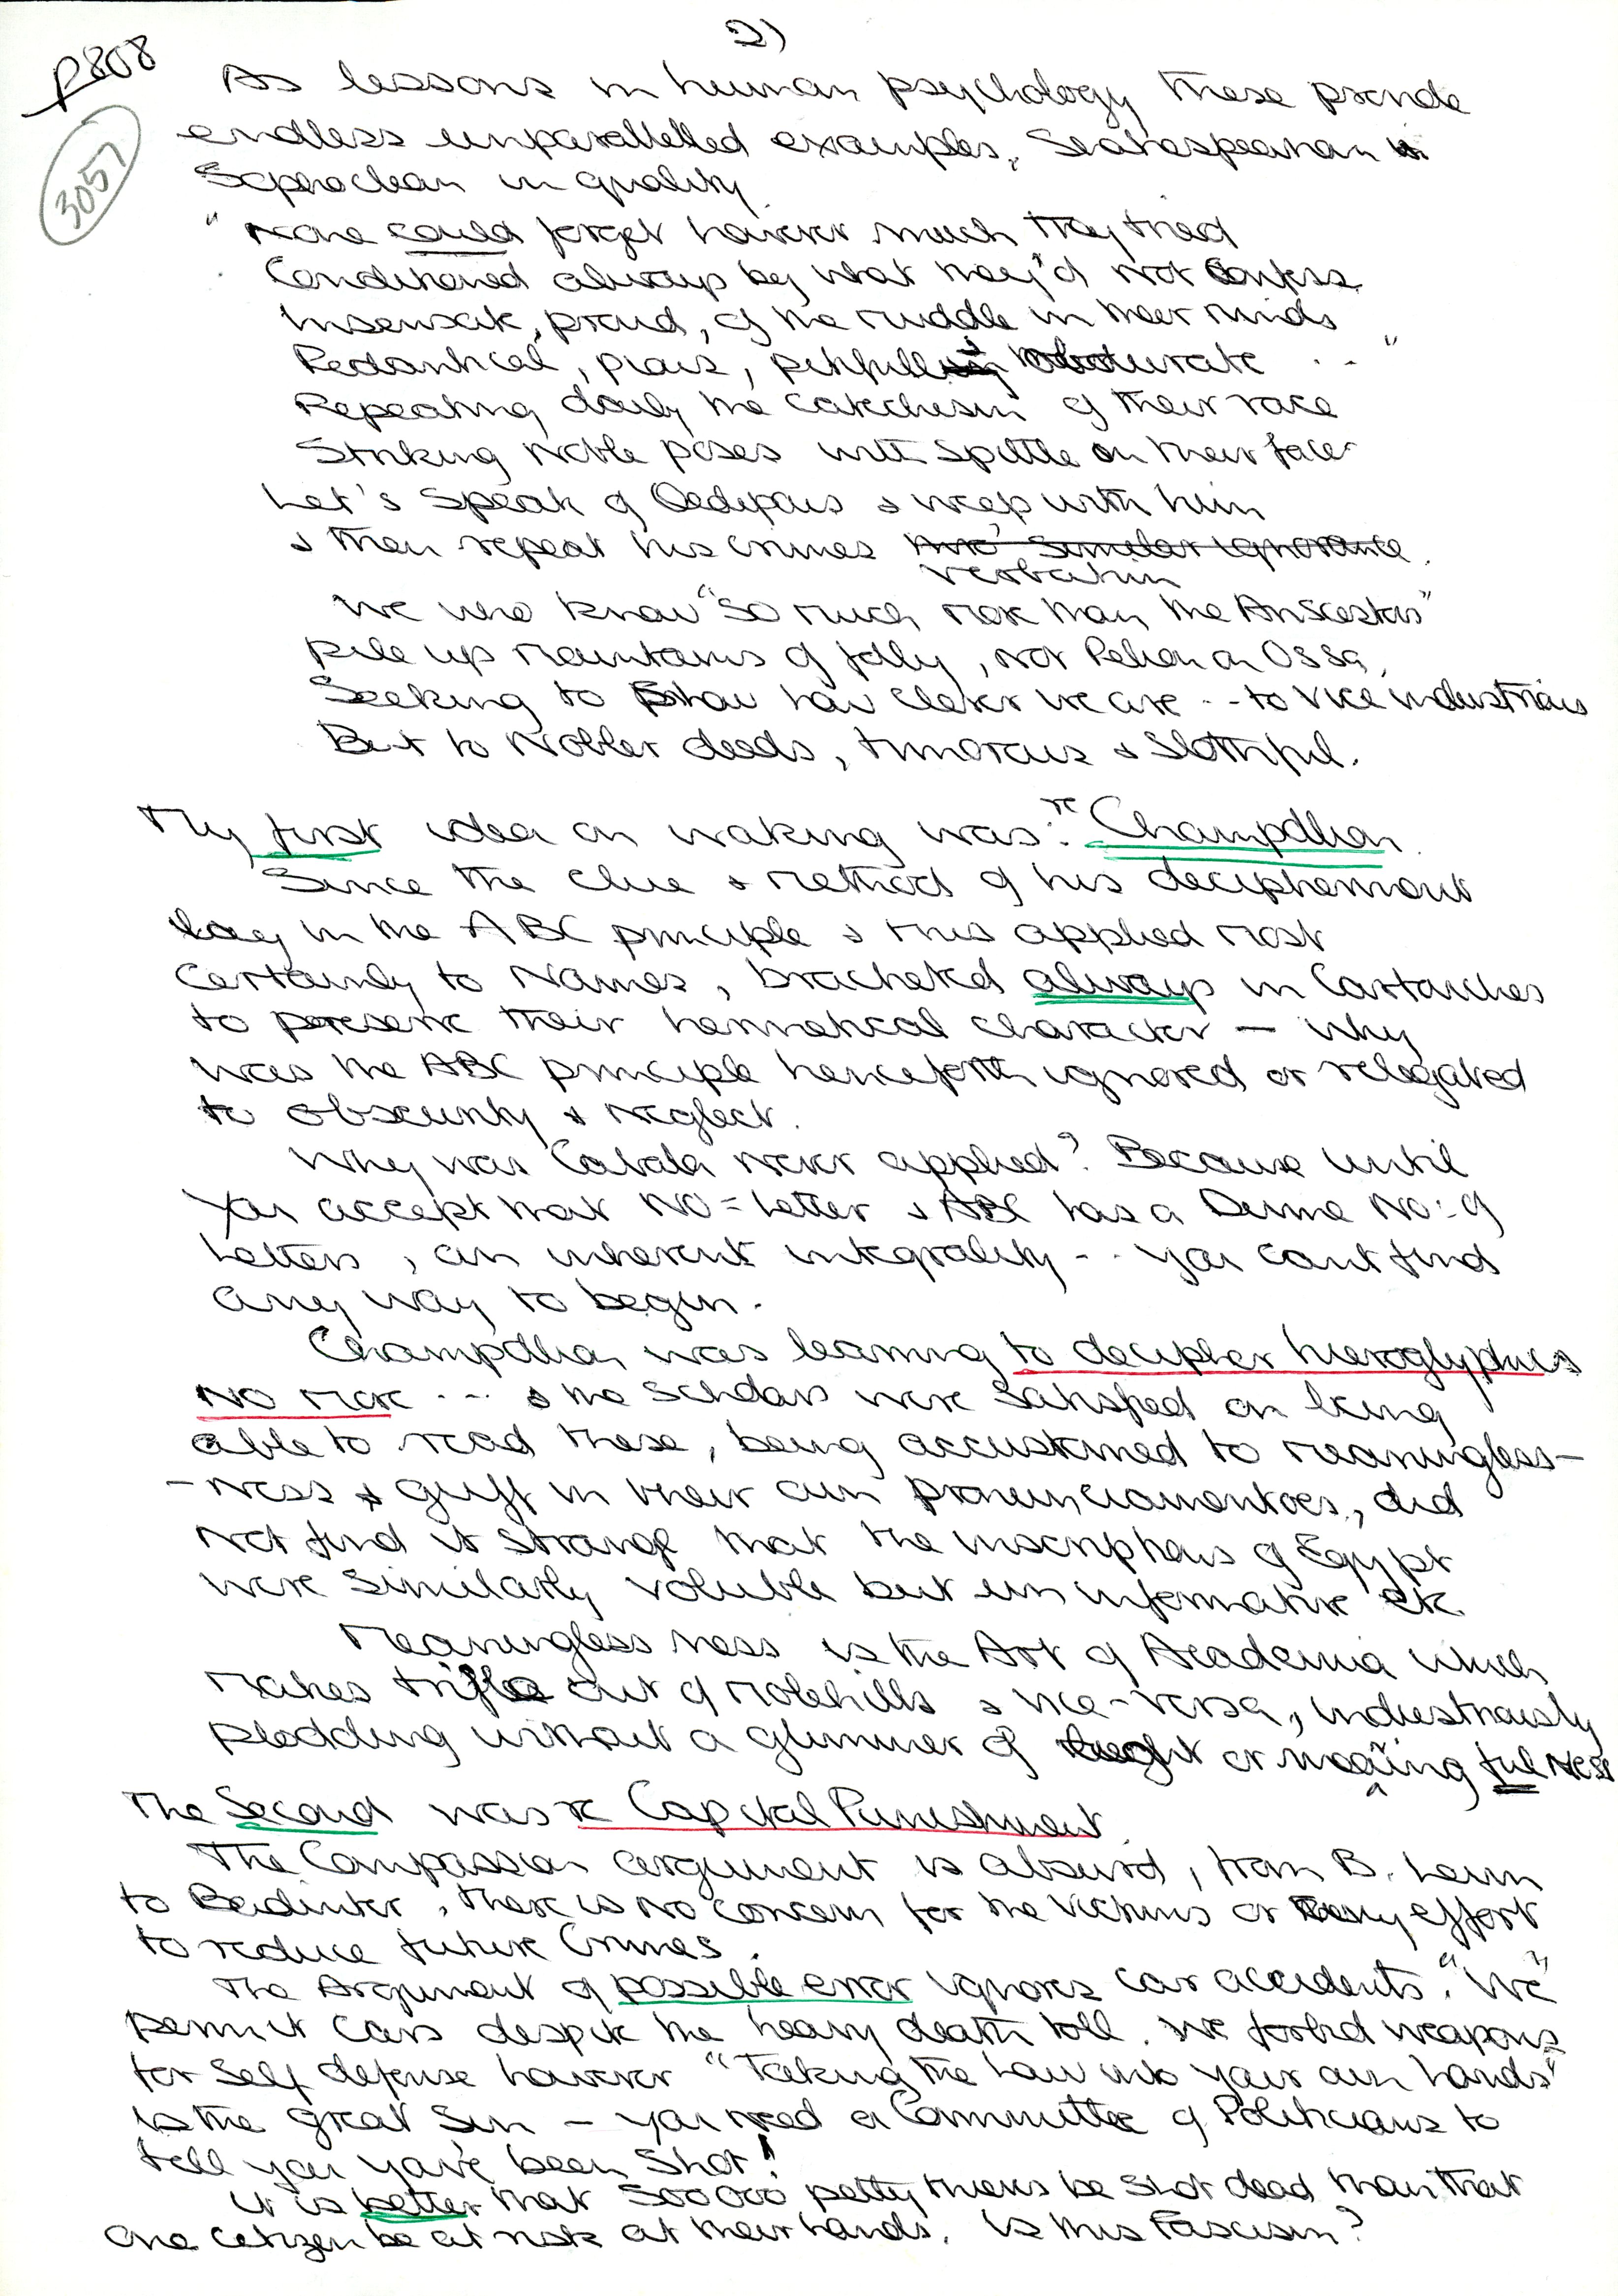 2)
P808
3057
As lessons in human psychology these provide
endless unparallelled examples, Seakespearian
Sophoclean in quality
" None could forget however much they tried
Conditioned always by what they'd not confess
Insensate, proud, of the muddle in their minds
Pedantical, pious, pitifully obdurate ... "
Repeating daily the catechism of their race
Striking noble poses with spittle on their face
Let's speak of Oedipus & weep with him
& then repeat his crimes And similar ignorance.
verbatim
We who know "so much more than the Anscestors"
pile up mountains of folly, not Pelion on Ossa,
Seeking to show how clever we are .. to vice industrious
But to Nobler deeds, timorous & slothful.
My first idea on waking was: re Champollion
Since the clue & method of his decipherment
lay in the ABC principle & this applied most
Certainly to Names, bracketed always in Cartouches
to preserve their hermetical character – why
was the ABC principle henceforth ignored or relegated
to obscurity & neglect.
Why was Cabala never applied? Because until
you accept that No = Letter & ABC has a Divine No: of
Letters, an inherent integrality .. you cant find
any way to begin.
Champollion was learning to decipher hieroglyphics
no more ... & the scholars were satisfied on being
able to read these, being accustomed to meaningless-
-ness & guff in their own pronunciamentoes, did
not find it strange that the inscriptions of Egypt
were similarly voluble but uninformative etc.
Meaninglessness is the Art of Academia which
makes trifles out of molehills & vice-versa, industriously
plodding without a glimmer of light or meaningfulness
The Second was re Capital Punishment.
The Compassion argument is absurd, from B. Levin
to Badinter, there is no concern for the victims or any effort
to reduce future Crimes.
The Argument of possible error ignores car accidents. "We"
permit cars despite the heavy death toll. We forbid weapons
for self defense however "Taking the Law into your own hands"
is the great Sin – you need a Committee of Politicians to
tell you you've been shot!
It is better that 500000 petty thieves be shot dead than that
one citizen be at risk at their hands. Is this Fascism?